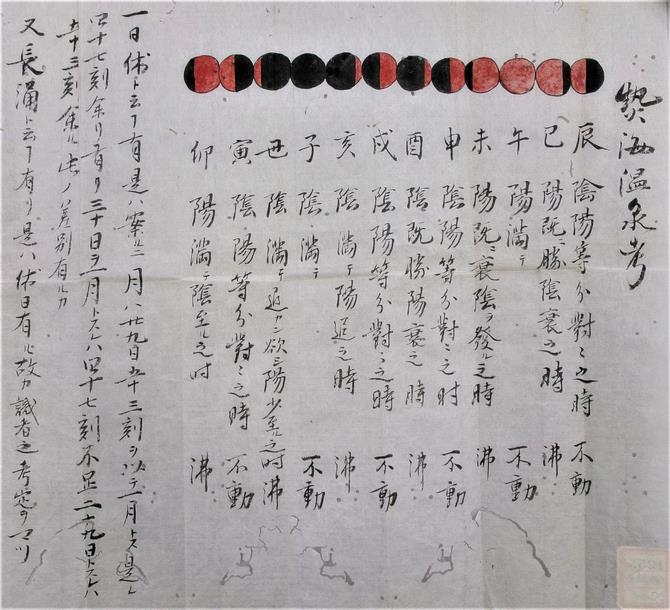 熱海温泉考
辰 陰陽等分對々之時 不動
巳 陽既ニ勝陰衰之時 沸
午 陽満テ 不動
未 陽既ニ衰陰ヲ發ル之時 沸
申 陰陽等分對々之时 不動
酉 陰既勝陽衰之時 沸
戌 陰陽等分對々之時 不動
亥 陰満テ陽退之時 沸
子 陰満テ 不動
丑 陰満テ退カン欲シ陽少至ル之时 沸
寅 陰陽等分對々之時 不動
卯 陽満テ陰至ル之时 沸
一日休ト云フ有是ハ案ルニ月ハ廿九日五十三刻ヲ以テ一月トス是レ
四十七刻余リ有リ三十日ヲ一月トスレハ四十七刻不足二十九日トスレハ
五十三刻余ル此ノ差別有ルカ
又長涌ト云フ有リ是ハ休日有ル故カ識者之考定ヲマツ